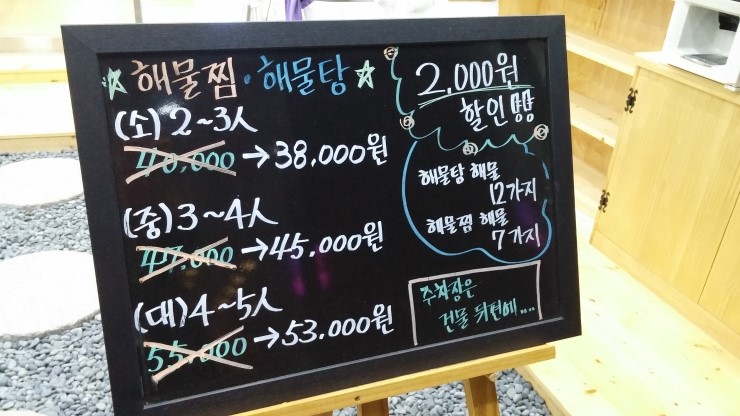 ☆해물찜·해물탕☆
(소) 2~3人
40,000→38,000원
(중) 3~4人
47,000→45,000원
(대) 4~5人
55,000→53,000원
2,000원
할인
해물탕 해물
12가지
해물찜 해물
7가지
주차장은
건물 뒤편에....